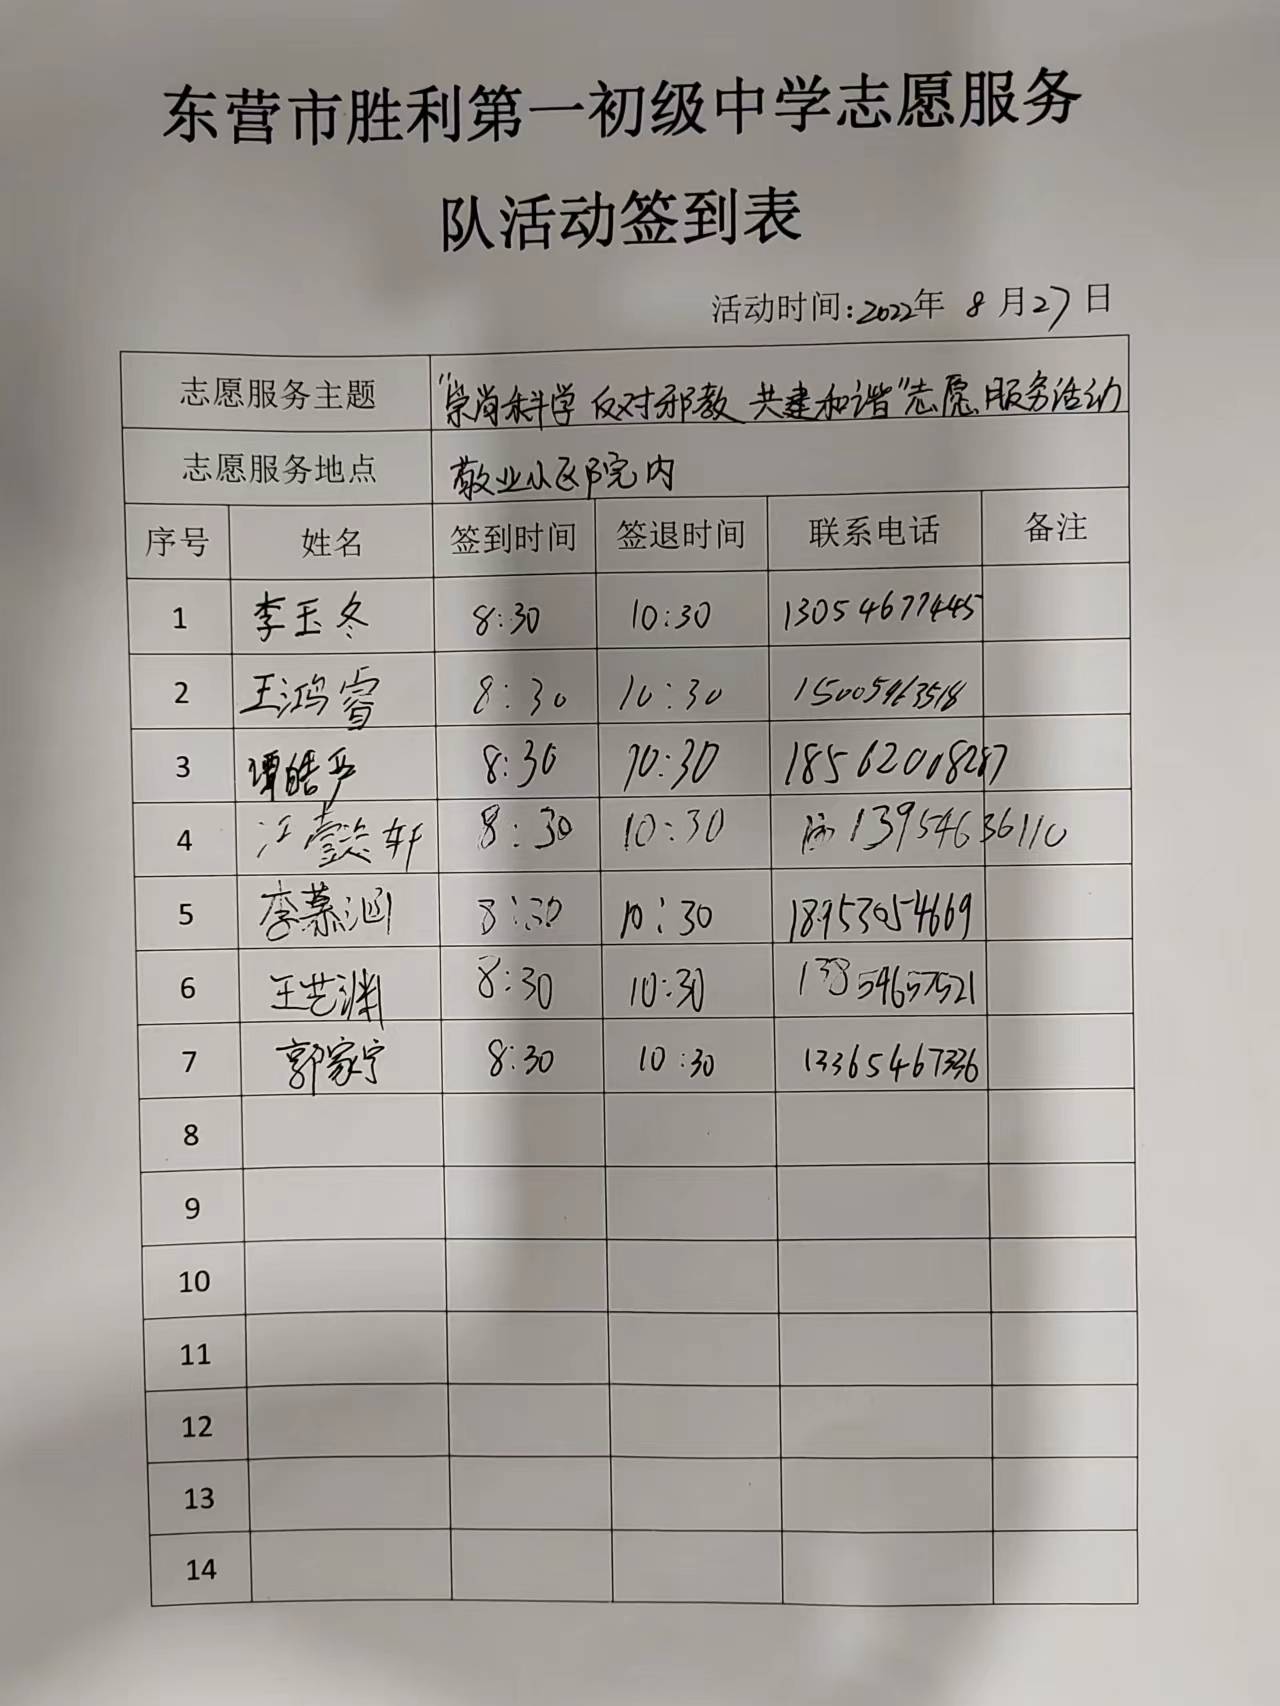 东营市胜利第一初级中学志愿服务
队活动签到表
活动时间:2022年 8 月27日
志愿服务主题 "崇尚科学 反对邪教 共建和谐"志愿服务活动
志愿服务地点 敬业小区院内
序号 姓名 签到时间 签退时间 联系电话 备注
1 李玉冬 8:30 10:30 13054677445
2 王鸿睿 8:30 10:30 15005463518
3 谭皓 8:30 10:30 18562008287
4 汪懿轩 8:30 10:30 13954636110
5 李慕涵 8:30 10:30 18953054669
6 王艺渊 8:30 10:30 13854657521
7 郭家宁 8:30 10:30 13365467336
8
9
10
11
12
13
14